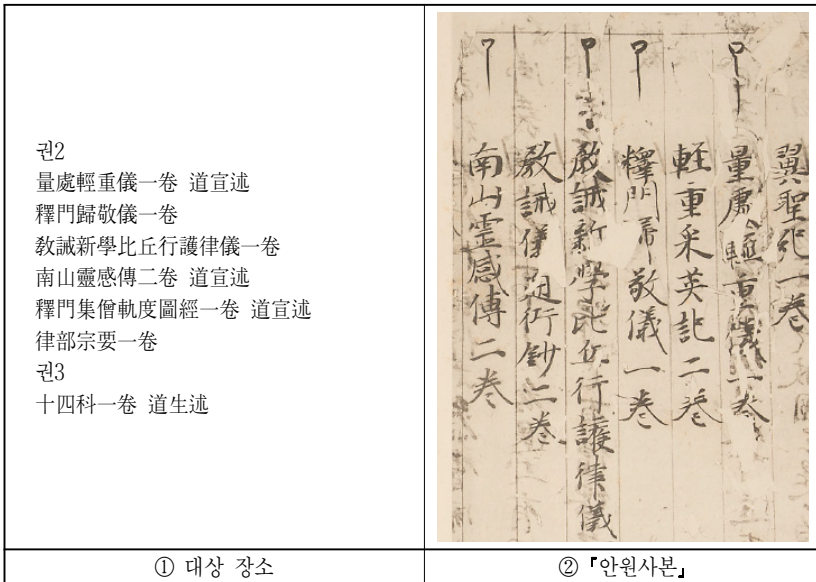 권2
量處輕重儀一卷 道宣述
釋門歸敬儀一卷
敎誡新學比丘行護律儀一卷
南山靈感傳二卷 道宣述
釋門集僧軌度圖經一卷 道宣述
律部宗要一卷
권3
十四科一卷 道生述
翼聖記一巻
量處輕重儀一巻
軽重采英記二巻
釋門帰敬儀一巻
教誡新學比丘行護律儀
教誡儀通衍鈔二巻
南山霊感傳二巻
① 대상 장소
② 『안원사본』